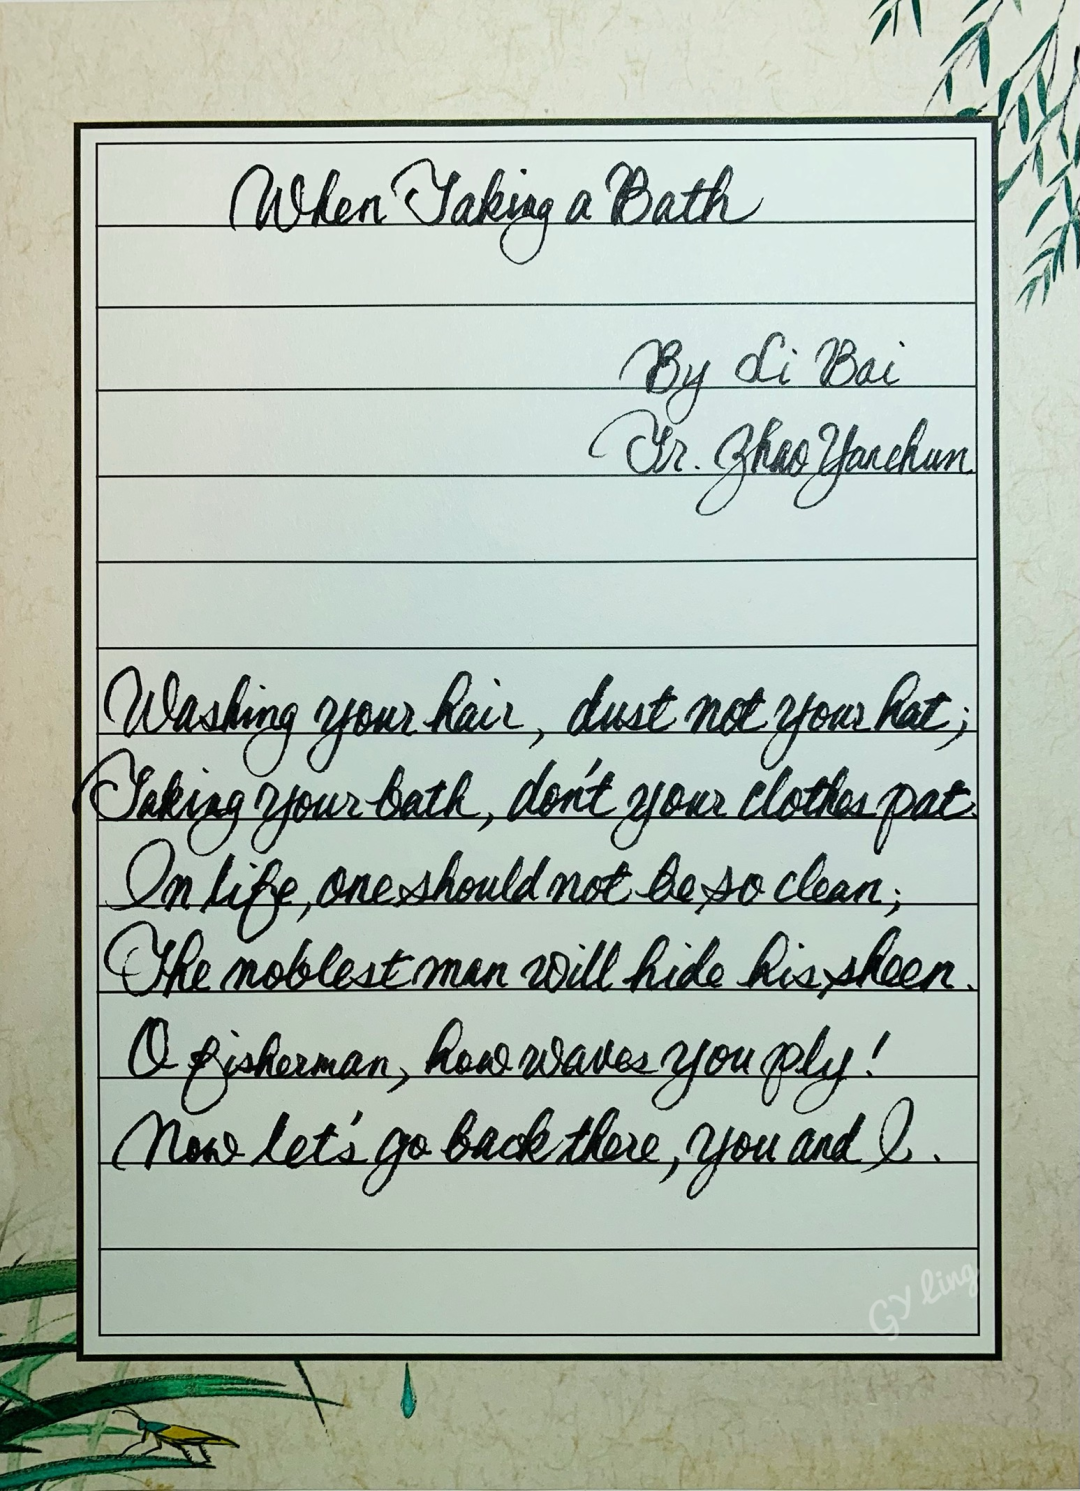 When Taking a Bath
By Li Bai
Tr. Zhao Yanchun
Washing your hair, dust not your hat;
Taking your bath, don't your clothes pat.
In life, one should not be so clean;
The noblest man will hide his sheen.
O fisherman, how waves you ply!
Now let's go back there, you and I.
GY ling